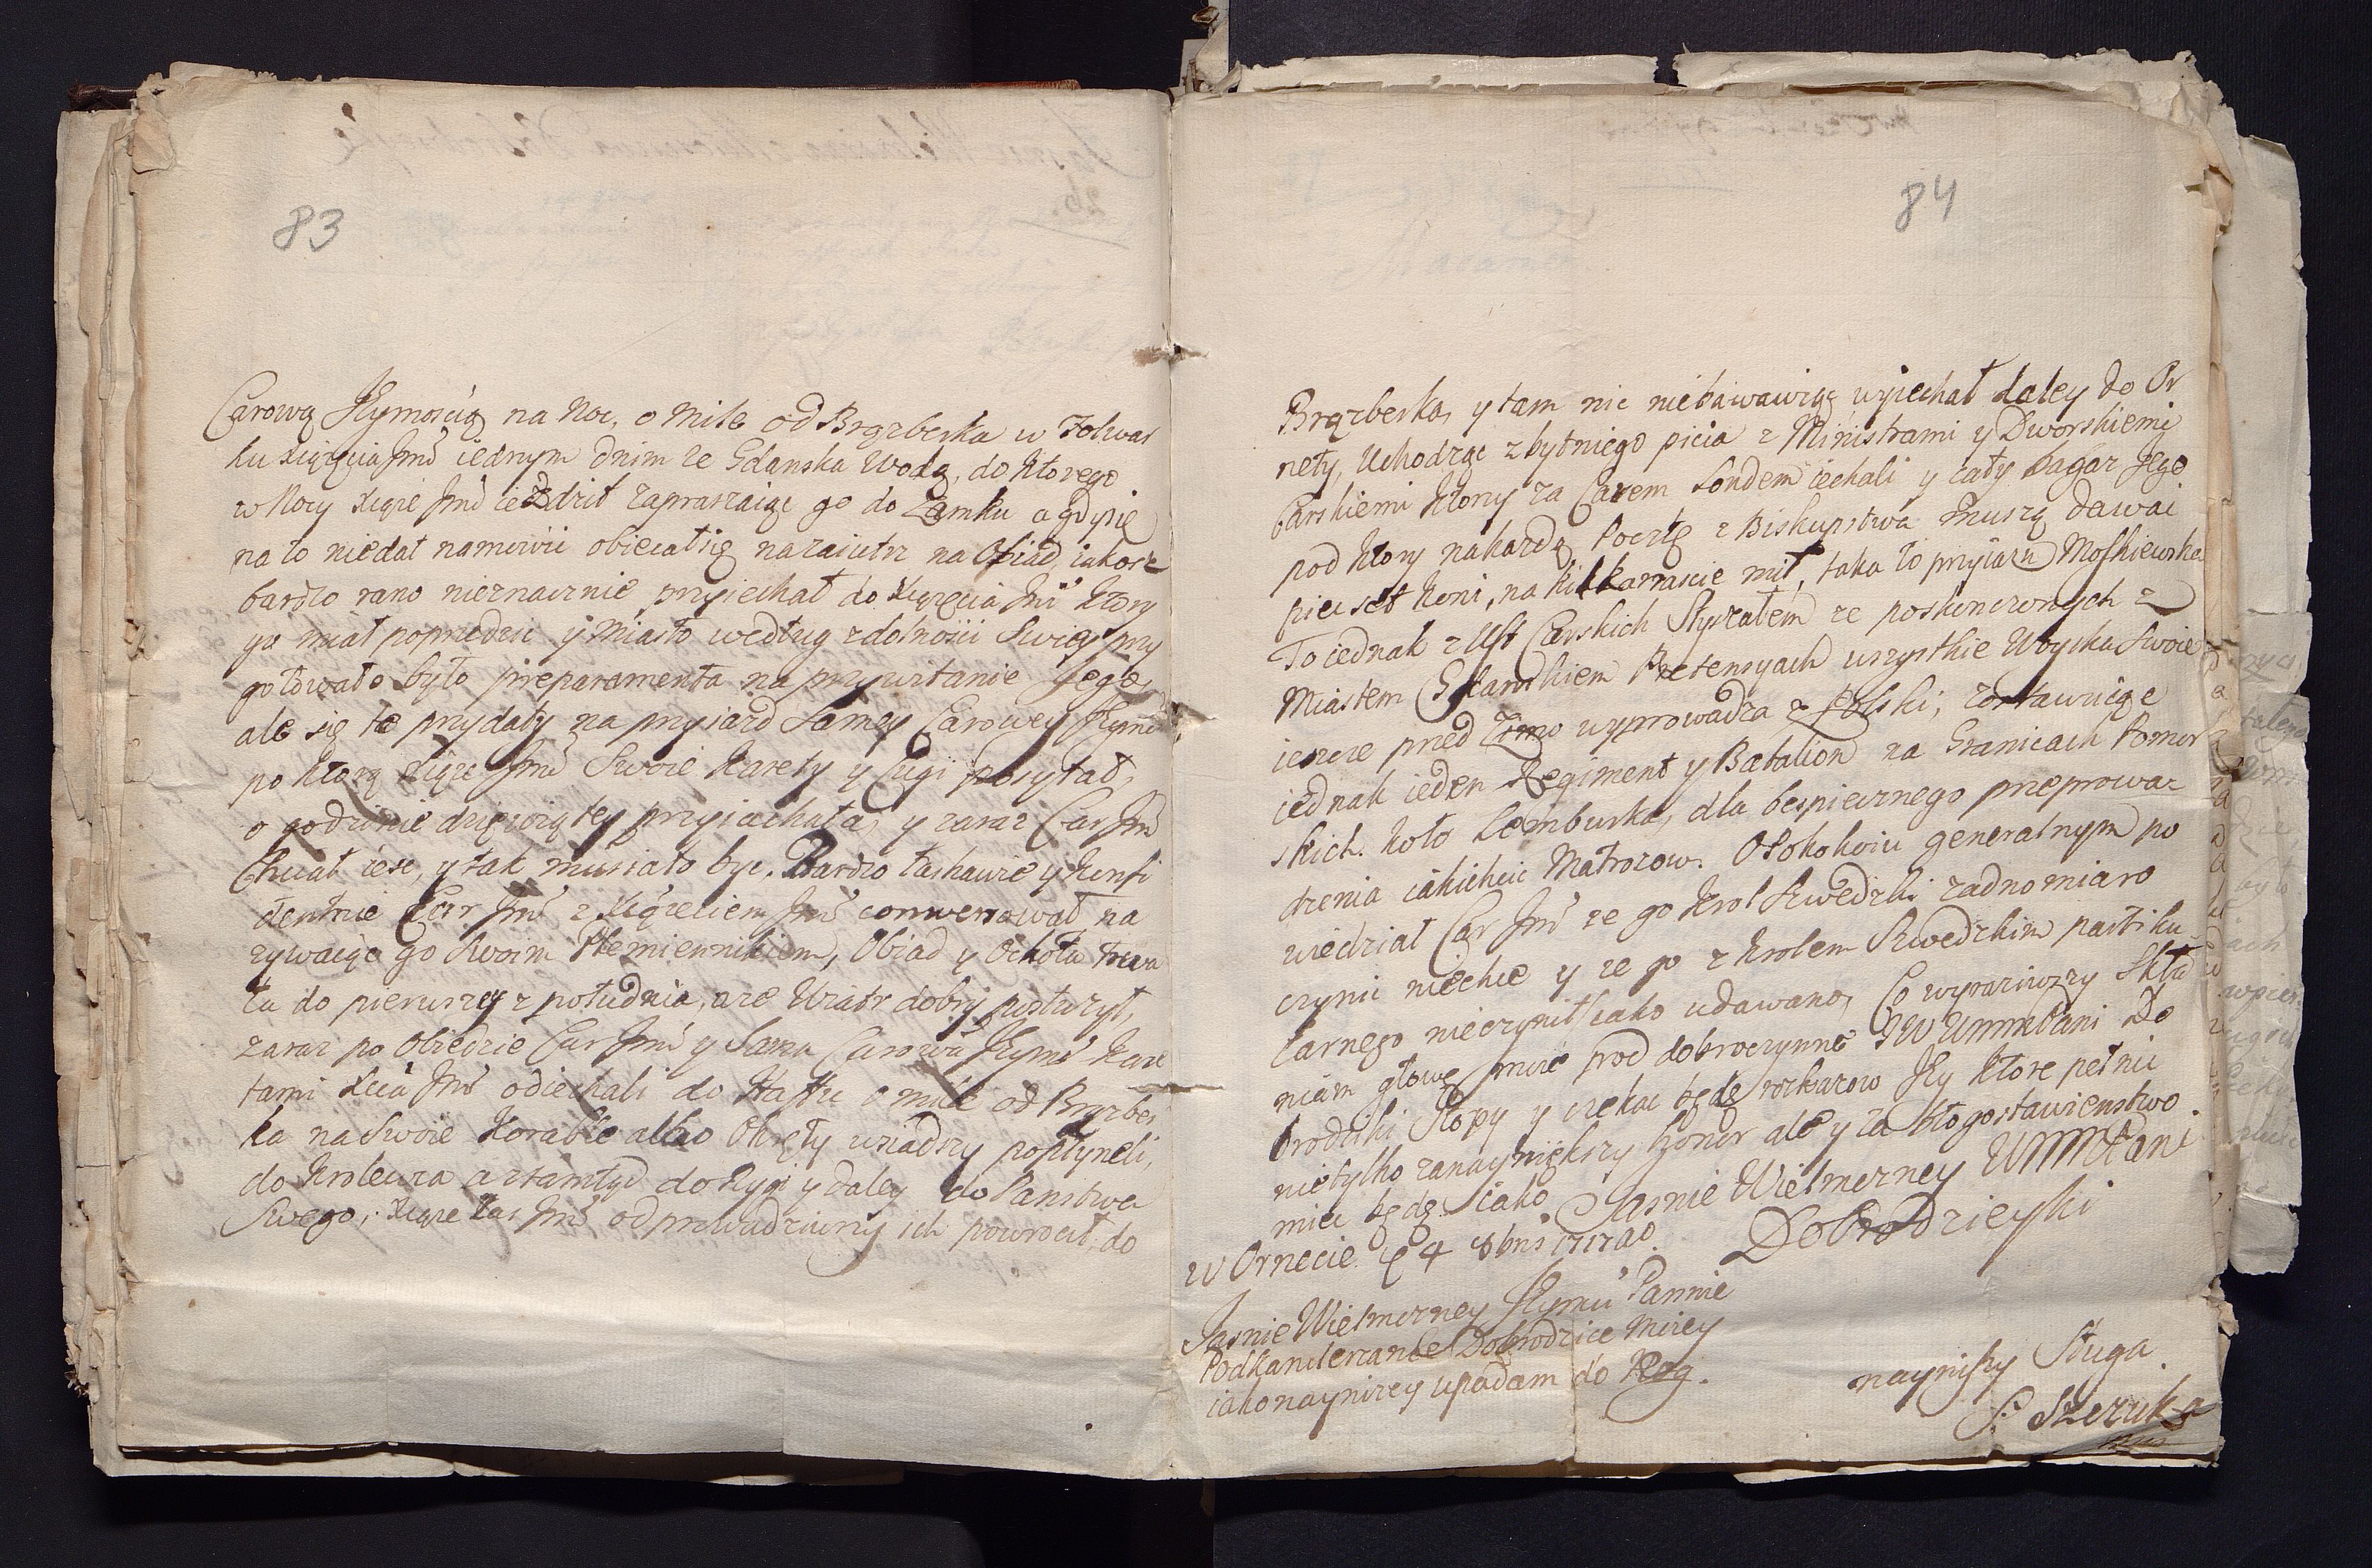 83
Carową Jeymoscią na Noc, o Mile od Brązberka w Folwar
ku Xiążęcia Jmś iednym dnim ze Gdanska Wodą, do Ktorego
w Nocy Xiąże Jmś ieździł zapraszaiąc go do Zamku a gdy się
na to niedał namowić obiecał się nazaiutrz na Obiad, iakosz
bardzo rano nieznacznie przyiechał do Xiążęcia Jmś Ktory
go miał poprzedzić y Miasto według zdolnosci Swoiey przy
gotowało było preparamenta na przywitanie Jego,
ale się te przydały na przyiazd Samey Carowey Jeymś
po Ktorą Xiąże Jmś Swoie Karety y Cugi posyłał,
o godzinie dziewiątey przyiachała, y zaraz Car Jmś
Chciał iesc, y tak musiało byc. Bardzo łaskawie y Konfi
dentnie Car Jmś z Xiążeciem Jmś conwersował, na
zywaiąc go Swoim Plemiennikiem, Obiad y Ochota trwa
ła do pierwszey z południa, aże Wiatr dobry posłużył,
zaraz po Obiedzie Car Jmś y Sama Carowa Jeymś Kare
tami Xcia Jmś odiechali do Haffu o mile od Brązber
ka na Swoie Korable albo Okręty wsiadszy popłyneli,
do Krolewca a ztamtyd do Rygi y daley do Panstwa
Swego, Xiąże zas Jmś odprowadziwszy ich powrocił do
84
Brązberka, y tam nic niebawiwszy wyiechał daley do Or
nety, Uchodząc zbytniego picia z Ministrami y Dworskiemi
Carskiemi Ktorzy za Carem Londem iechali y cały Bagaz Jego
pod Ktory na kazdą Pocztę z Biskupstwa muszą dawać
pięc set Koni, na Kilkanascie mil, taka to przyiazn Moskiewska
To iednak z Ust Carskich Słyszałem ze poskonczonych z
Miastem Gdanskiem Pretensyach wszystkie Woyska Swoie
ieszcze przed Zimo wyprowadza z Polski, zostawuiąc
iednak ieden Regiment y Batalion na Granicach Pomor
skich. koło Lemburka, dla bespiecznego przeprowa-
dzenia iakichcic Matrozow. O Pokokoiu generalnym po
wiedział Car Jmś ze go Krol Szwedzki zadno miaro
czynic niechce y ze go z Krolem Szwedzkim partiku
larnego nieczynił iako udawano, Co wyraziwszy Skła
niam głowę moię pod dobroczynne JW WMM Pani Do
brodziki Stopy y czekac będę rozkazow Jey Ktore pełnic
nietylko zanaywiększy honor ale y za błogosławienstwo
miec będę. iako Jasnie Wielmozney WMMPani
w Ornecie d 4 8bris 1717 Ao. Dobrodzieyki
Jasnie Wielmozney Jeymś Pannie
Podkanclerzance Dobrodzice Moiey
iako nayniżey upadam do Nog.
naynizszy Sługa
S: Szczuka